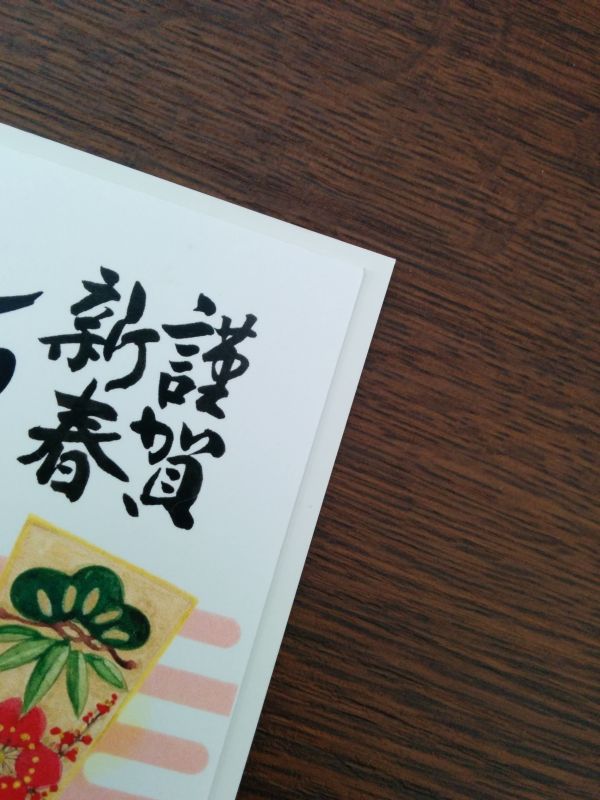 謹賀
新春